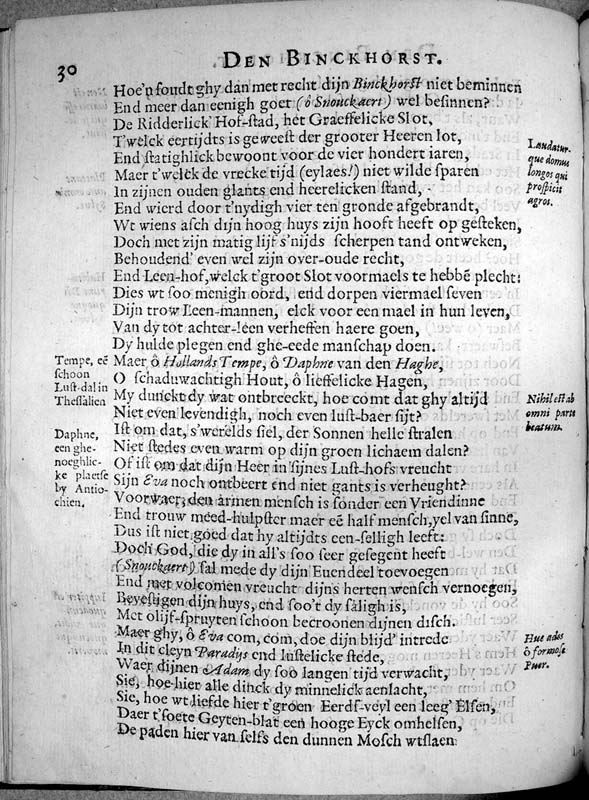 30
DEN BINCKHORST.
Hoe'n soudt ghy dan met recht dijn Binckhorst niet beminnen
End meer dan eenigh goet (ô Snouckaert) wel besinnen?
De Ridderlick' Hof-stad, het Graeffelicke Slot,
T'welck eertijdts is geweest der grooter Heeren lot,
End statighlick bewoont voor de vier hondert iaren,
Maer t'welck de vrecke tijd (eylaes!) niet wilde sparen
In zijnen ouden glants end heerelicken stand,
End wierd door t'nydigh vier ten gronde afgebrandt,
Wt wiens asch dijn hoog huys zijn hooft heeft op gesteken,
Doch met zijn matig lijf s'nijds scherpen tand ontweken,
Behoudend' even wel zijn over-oude recht,
End Leen-hof, welck t'groot Slot voormaels te hebbē plecht:
Dies wt soo menigh oord, end dorpen viermael seven
Dijn trow Leen-mannen, elck voor een mael in hun leven,
Van dy tot achter-leen verheffen haere goen,
Dy hulde plegen end ghe-eede manschap doen.
Maer ô Hollands Tempe, ô Daphne van den Haghe,
O schaduwachtigh Hout, ô lieffelicke Hagen,
My dunckt dy wat ontbreeckt, hoe comt dat ghy altijd
Niet even levendigh, noch even lust-baer sijt?
Ist om dat, s'werelds siel, der Sonnen helle stralen
Niet stedes even warm op dijn groen lichaem dalen?
Of ist om dat dijn Heer in sijnes Lust-hofs vreucht
Sijn Eva noch ontbeert end niet gants is verheught?
Voorwaer, den armen mensch is sonder een Vriendinne
End trouw meed-hulpster maer eē half mensch, yel van sinne,
Dus ist niet goed dat hy altijdts een-selligh leeft:
Doch God, die dy in all's soo seer gesegent heeft
(Snouckaert) sal mede dy dijn Euendeel toevoegen
End met volcomen vreucht dijns herten wensch vernoegen,
Bevestigen dijn huys, end soo't dy saligh is,
Met olijf-spruyten schoon becroonen dijnen disch.
Maer ghy, ô Eva com, com, doe dijn blijd' intrede
In dit cleyn Paradijs end lustelicke stede,
Waer dijnen Adam dy soo langen tijd verwacht,
Sie, hoe hier alle dinck dy minnelick aenlacht,
Sie, hoe wt liefde hier t'groen Eerds-veyl een leeg' Elsen,
Daer t'soete Geyten-blat een hooge Eyck omhelsen,
De paden hier van selfs den dunnen Mosch wtslaen
Laudatur-
que domus
longos qui
prospicit
agros.
Tempe, eē
schoon
Lust-dal in
Thessalien
Nihil est ab
omni parte
beatum.
Daphne,
een ghe-
noeghlic-
ke plaetse
by Antio-
chien.
Huc ades
ô formose
Puer.